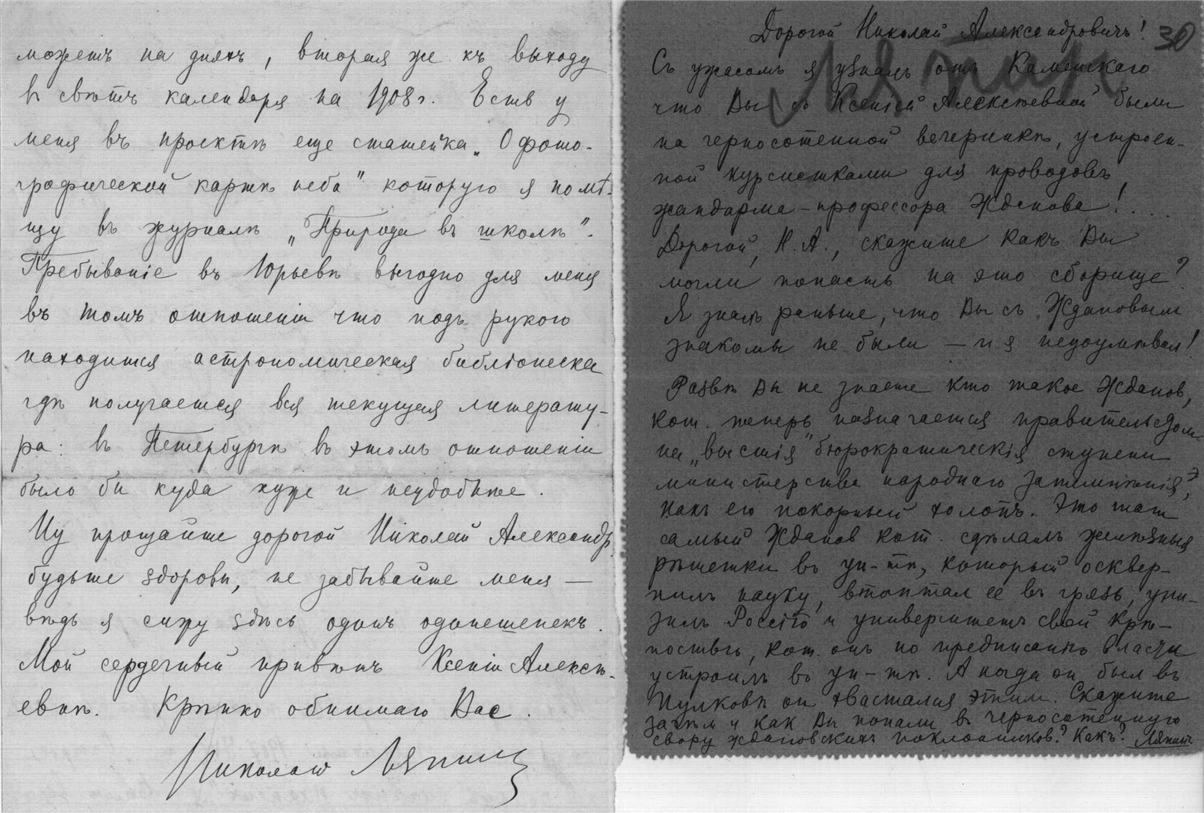 можетъ на дняхъ, вторая же къ выходу
въ свѣтъ календаря на 1908 г. Есть у
меня въ проектѣ еще статейка „О фото-
графической картѣ неба" которую я помѣ-
щу въ журналѣ „Природа въ школѣ".
Пребываніе въ Юрьевѣ выгодно для меня
въ томъ отношеніи что подъ рукою
находится астрономическая библіотека
гдѣ получается вся текущая литерату-
ра: въ Петербургѣ въ этомъ отношеніи
было бы куда хуже и неудобнѣе.
Ну прощайте дорогой Николай Александр.
будьте здоровы, не забывайте меня —
вѣдь я сижу здѣсь одинъ одинешенекъ.
Мой сердечный привѣтъ Ксеніи Алексѣ-
евнѣ. Крѣпко обнимаю Вас.
Николай Ляпинъ
Дорогой Николай Александровичъ!
30
Ляпин
Съ ужасомъ я узналъ отъ Каменскаго
что Вы съ Ксеніей Алексѣевной были
на черносотенной вечеринкѣ, устроен-
ной курсистками для проводовъ
жандарма-профессора Жданова!....
Дорогой, Н. А., скажите какъ Вы
могли попасть на это сборище?
Я зналъ раньше, что Вы съ Ждановым
знакомы не были — и я недоумѣвал!
Развѣ Вы не знаете кто такое Жданов,
кот. теперь назначается правительством
на „высшія" бюрократическія ступени
министерства народнаго затемнѣнія,
какъ его покорный холопъ. Это тотъ
самый Жданов кот. сдѣлалъ желѣзныя
рѣшетки въ ун-тѣ, который осквер-
нилъ науку, втоптал ее въ грязь, уни-
зилъ Россію и университетъ свой крѣ-
постью, кот. онъ по предписанію власти
устроилъ въ ун-тѣ. А когда он был въ
Пулковѣ он хвастался этим. Скажите
зачѣм и как Вы попали в черносотенную
свору ждановскихъ поклонниковъ? Какъ? Ляпинъ